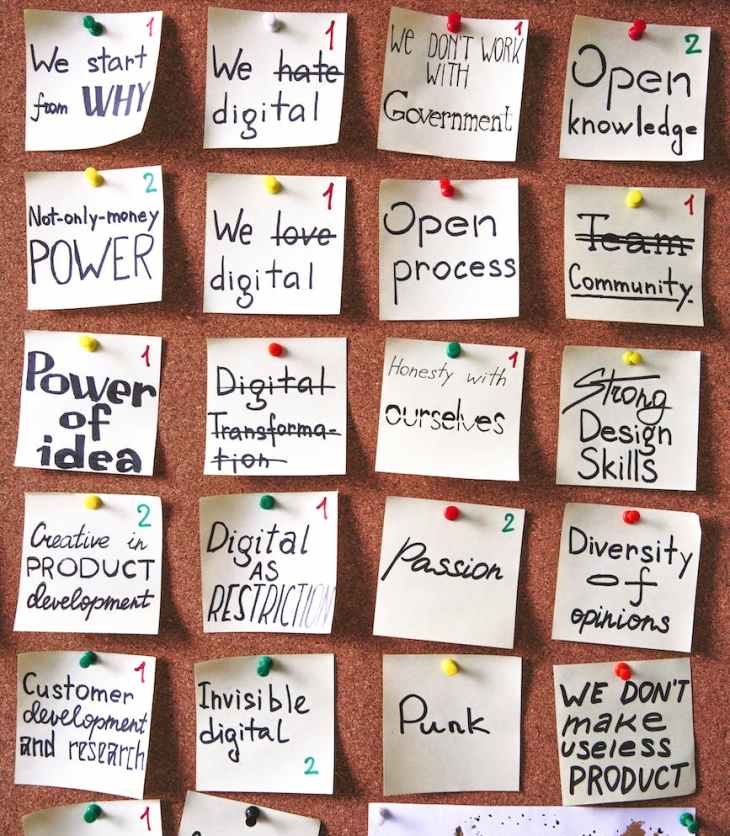 1
We start
from WHY
1
We hate
digital
1
We DON'T WORK
WITH
Government
2
Open
knowledge
2
Not-only-money
POWER
1
We love
digital
Open
process
1
Team
Community.
1
Power
of
idea
Digital
Transforma-
tion
1
Honesty with
ourselves
Strong
Design
Skills
2
Creative in
PRODUCT
development
1
Digital
AS
RESTRICTION
2
Passion
Diversity
of
opinions
1
Customer
development
and research
Invisible
digital
2
Punk
WE DON'T
make
useless
PRODUCT
1